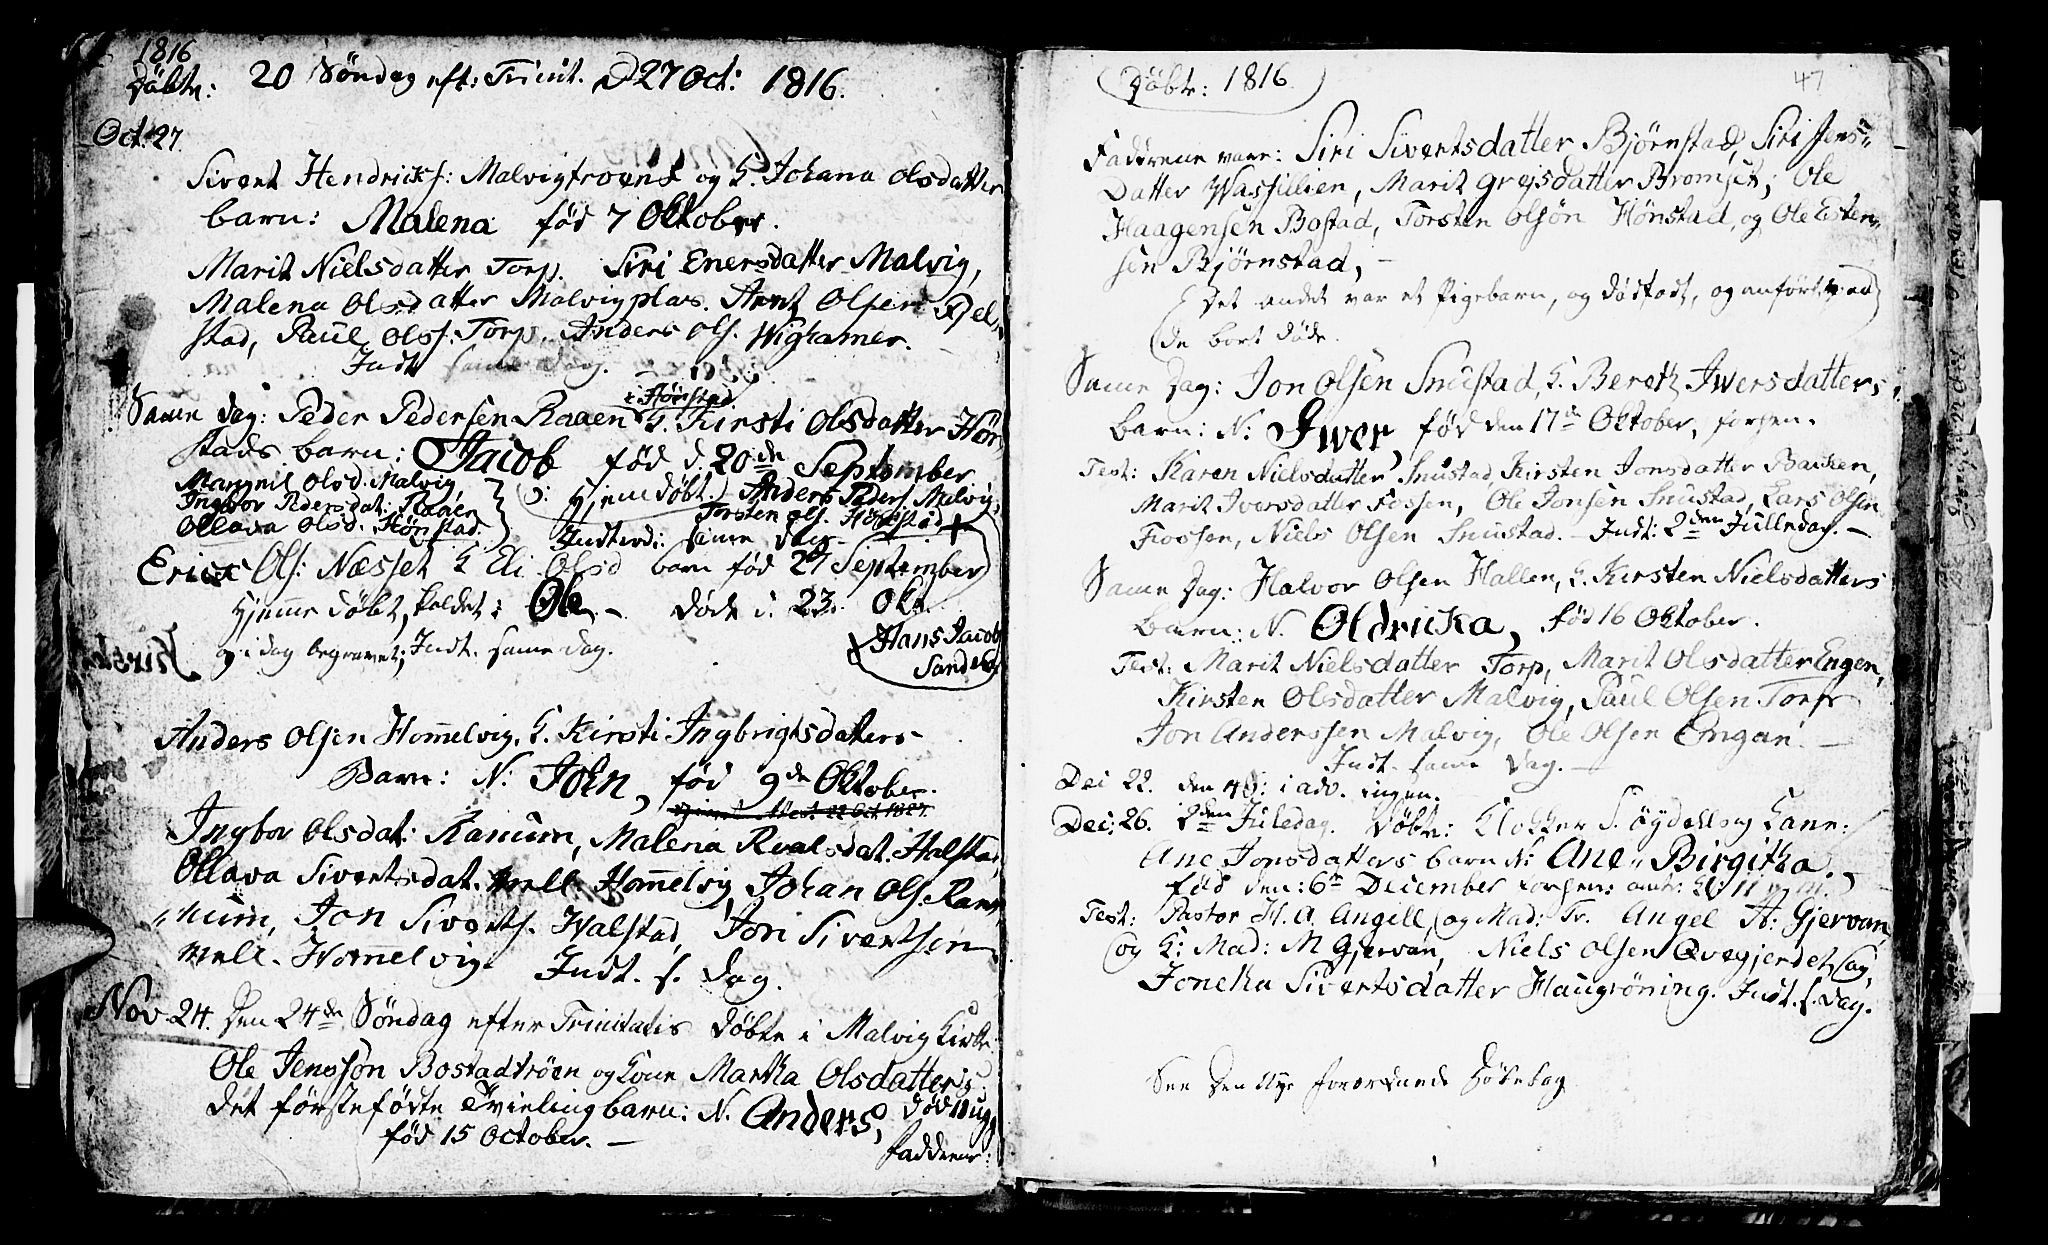 1816
Döbte: 20 Söndag eft: Trinit. D 27 Oct: 1816.
Oct. 27.
Sivert Hendrichs: Malvigtroens og K. Johana Olsdatter
barn: Malena fød 7 Oktober.
Marit Nielsdatter Torp. Siri Enersdatter Malvig,
Malena Olsdatter Malvigplads. Arnt Olsen Fjel-
stad, Paul Olss. Torp. Anders Ols. Wighamer.
Indt. samme Dag.
i Hönstad
Samme dag: Peder Pedersen Raaen K. Kirsti Olsdatter Hön
stads barn: Jacob fød d. 20de September
Margrit Olsd. Malvig
Ingebor Pedersdat: Raaen
Ollava Olsd. Hönstad.
Hjemdøbt. Anders Peders. Malvig,
Torsten Ols. Hönstad
Indterd: samme dag.
Erich Ols: Næsset K Eli Olsd barn fød 27 September
Hjemme døbt, kaldet: Ole. døde d. 23. Okt.
og i dag begravet; Indt. samme dag.
Hans Jacob
Sandeb
Anders Olsen Hom̅elvig, K. Kirsti Ingbrigtsdatters
Barn: N: John, fød 9de Oktober.
Ingbor Olsdat: Kanum, Malena Roalsdat. Halstad,
Ollava Sivertsdat. mell. Hom̅elvig, Johan Ols. Kan-
num, Jon Siverts. Halstad, Jon Sivertsen
mell. Hom̅elvig. Indt. s. Dag.
Nov 24. Den 24de Söndag efter Trinitatis döbte i Malvig Kirke
Ole Jenssøn Bostadtrøen og kone Martha Olsdatters
det førstefödte Tvilingbarn: N. Anders,
fød 15 October. —
Faddrene:
Döbte: 1816
47
Fadrene vare: Siri Sivertsdatter Björnstad, Siri Jens-
Datter Wasjulien, Marit Grejsdatter Bromset; Ole
Haagensen Bostad, Torsten Olsön Hönstad, og Ole Esten-
sen Björnstad, —
Det andet var et Pigebarn, og dødfødt, og anført ved
de bort døde.
Samme Dag: Jon Olsen Snustad, K. Bereth Iwersdatters
barn: N: Iwer, fød den 17de Oktober,
Test: Karen Nielsdatter Snustad, Kirsten Jonsdatter Bakken,
Marit Iversdatter Fossen, Ole Jonsen Snustad, Lars Olsen
Fossen, Niels Olsen Snustad. — Indt: 2den Julledag. —
Samme Dag: Halvor Olsen Hallen, K. Kirsten Nielsdatters
barn: N. Oldricka, fød 16 Oktober.
Test: Marit Nielsdatter Torp, Marit Olsdatter Engen,
Kirsten Olsdatter Malvig, Paul Olsen Torp
Jon Anderssen Malvig, Ole Olsen Engan. —
Indt. samme Dag. —
Dec 22. den 4 S: i adv. ingen.
Dec: 26. 2den Juledag. Døbte: Klokker S. Øydell og Kane:
Ane Jonsdatters barn N: Ane Birgitha.
fød den: 6te December
Test: Pastor H. A. Angell, og Mad: Fr. Angel A: Gjervan,
og K: Mad: M Gjervan, Niels Olsen Qvegjerdet, og
Joneka Sivertsdatter Haugröning. Indt. s. Dag.
See Den Nye forordnede Döbebog